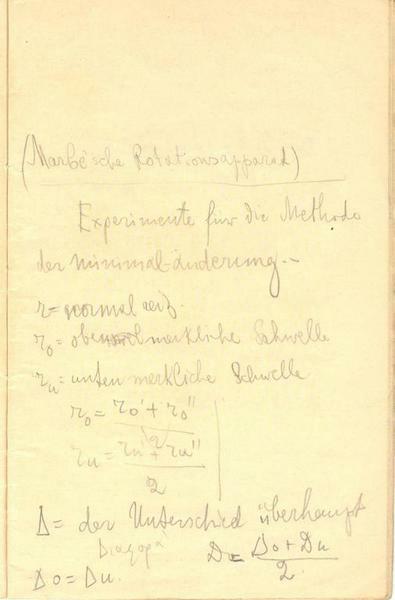 (Marbe'sche Rotationsapparat)
Experimente für die Methode
der minimal-änderung.-
r = normal reiz.
r₀ = oben merkliche Schwelle
rᵤ = unten merkliche Schwelle
r₀ = r₀' + r₀'' / 2
rᵤ = rᵤ' + rᵤ'' / 2
Δ = der Unterschied überhaupt
Διαφορά
Dᵤ = Δo + Du / 2
Δo = Δu.